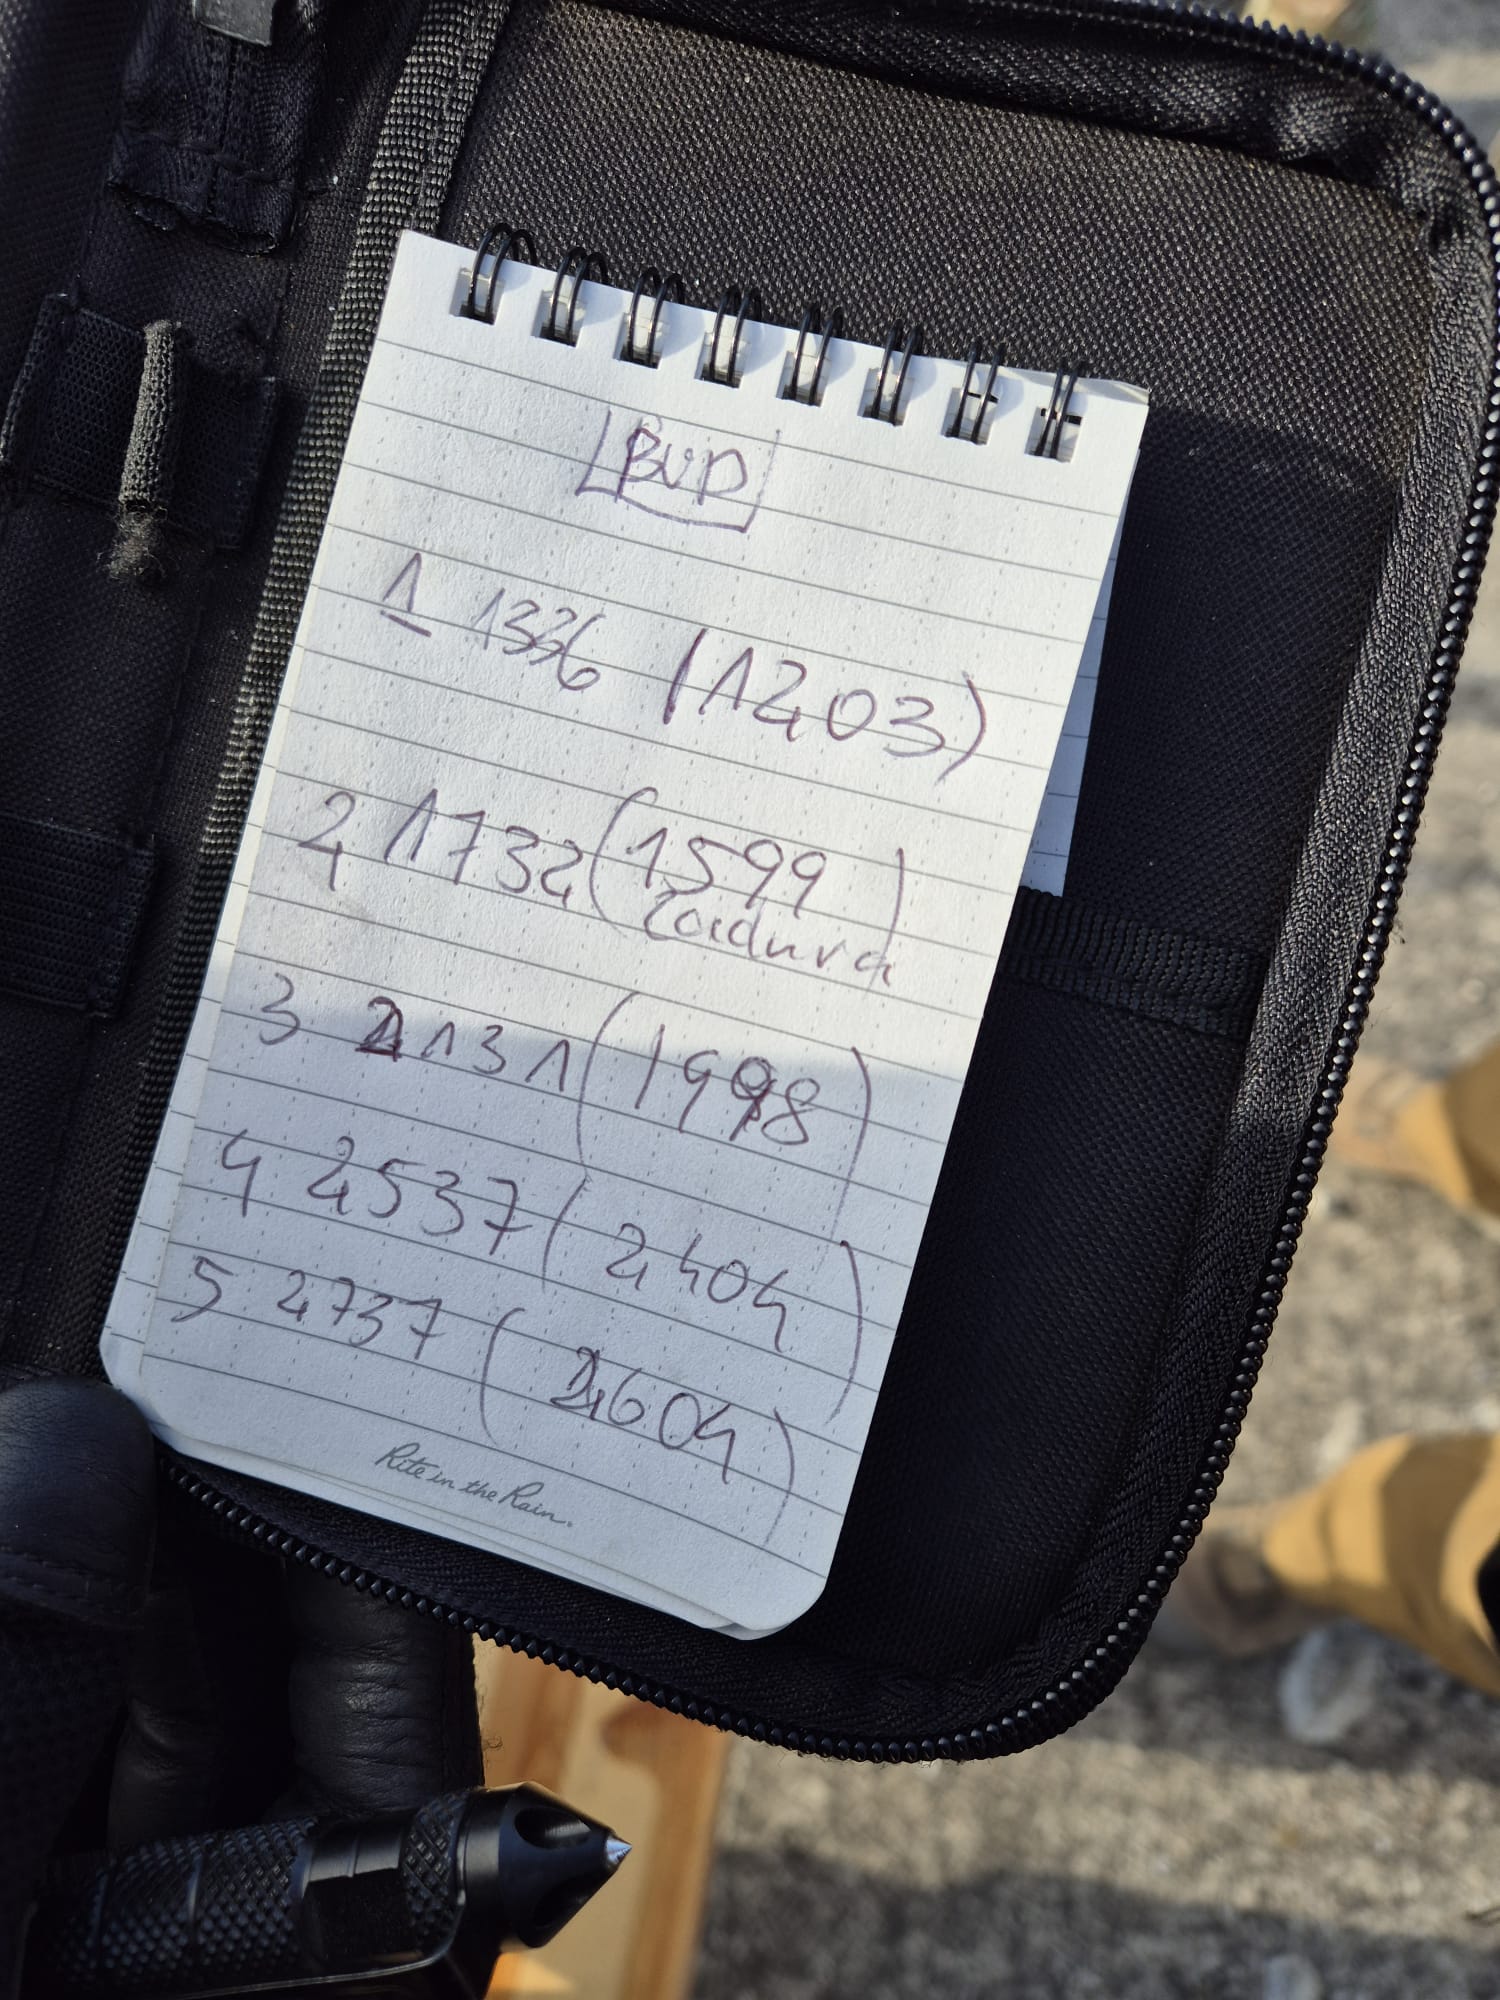 BVD
1 1336 (1203)
2 1732 (1599)
Zaidura
3 2131 (1998)
4 2537 (2404)
5 2737 (2604)
Rite in the Rain.